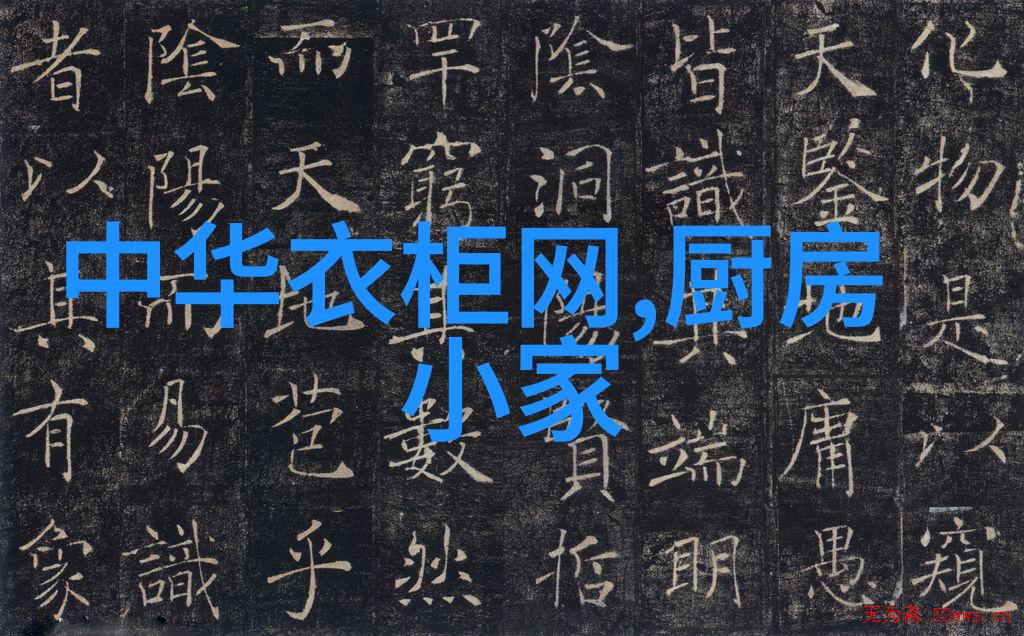 中华衣柜网,厨房
小家
化物是以窺
天鑒地庸愚
皆識其端明
陰洞陽賢哲
罕窮其數然
而天地苞乎
陰陽而易識
者以其有象
无为斋 52wwz.cn